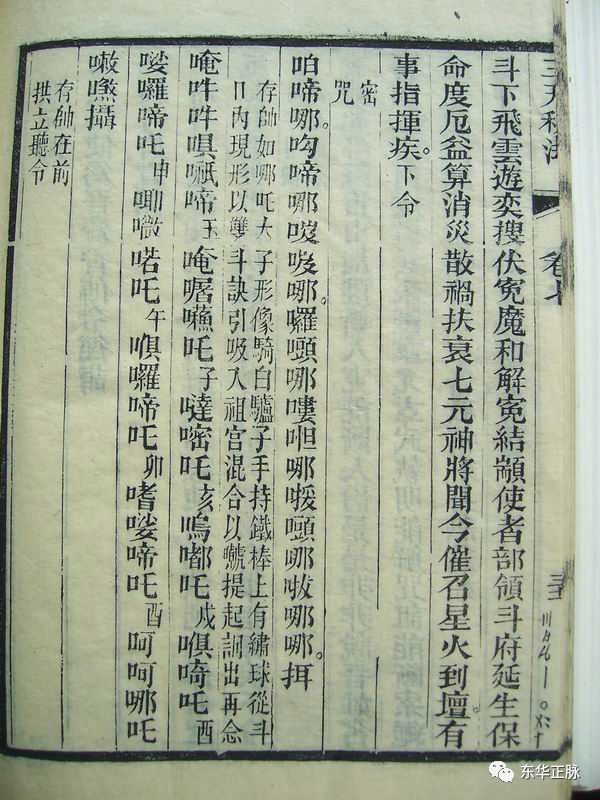 卷七
斗下飛雲遊奕搜伏寃魔和解寃結顓使者部領斗府延生保
命度厄益算消災散禍扶衰七元神將聞今催召星火到壇有
事指揮疾。下令
密
咒
咱啼哪呁啼哪唆哪。囉哪嘍呾哪喛哪哪哪。挕
存帥如哪吒太子形像騎白驢子手持鐵棒上有繡球從斗
口內現形以雙斗訣引吸入祖宮混合以提起訶出再念
唵吽吽啼玉唵吒子噠嘧吒亥嗚嘟吒戌吒酉
囉啼吒申唧喏吒午囉啼吒卯嗜啼吒酉呵呵哪吒
攝
存帥在前
拱立聽令
东华正脉